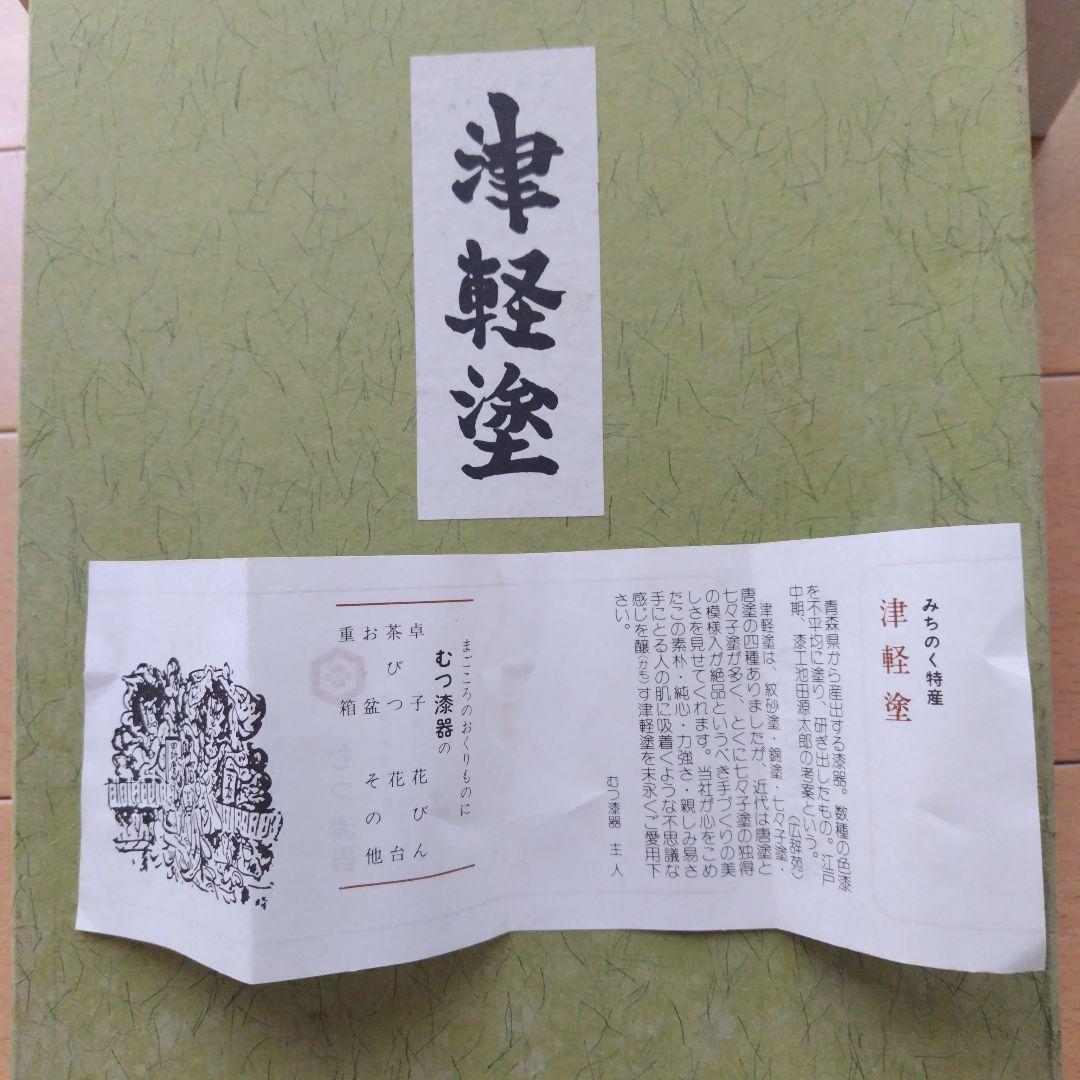 津軽塗
みちのく特産
津軽塗
青森県から産出する漆器。数種の色漆
を不平均に塗り、研ぎ出したもの。江戸
中期、漆工池田源太郎の考案という。
(広辞苑)
津軽塗は、紋砂塗・錦塗・七々子塗・
唐塗の四種ありましたが、近代は唐塗と
七々子塗が多く、とくに七々子塗の独得
の模様入が絶品というべき手づくりの美
しさを見せてくれます。当社が心をこめ
たこの素朴・純心・力強さ・親しみ易さ
手にとる人の肌に吸着くような不思議な
感じを醸(かも)す津軽塗を末永くご愛用下
さい。
むつ漆器 主人
まごころのおくりものに
むつ漆器の
卓子 花びん
茶びつ 花台
お盆 その他
重箱